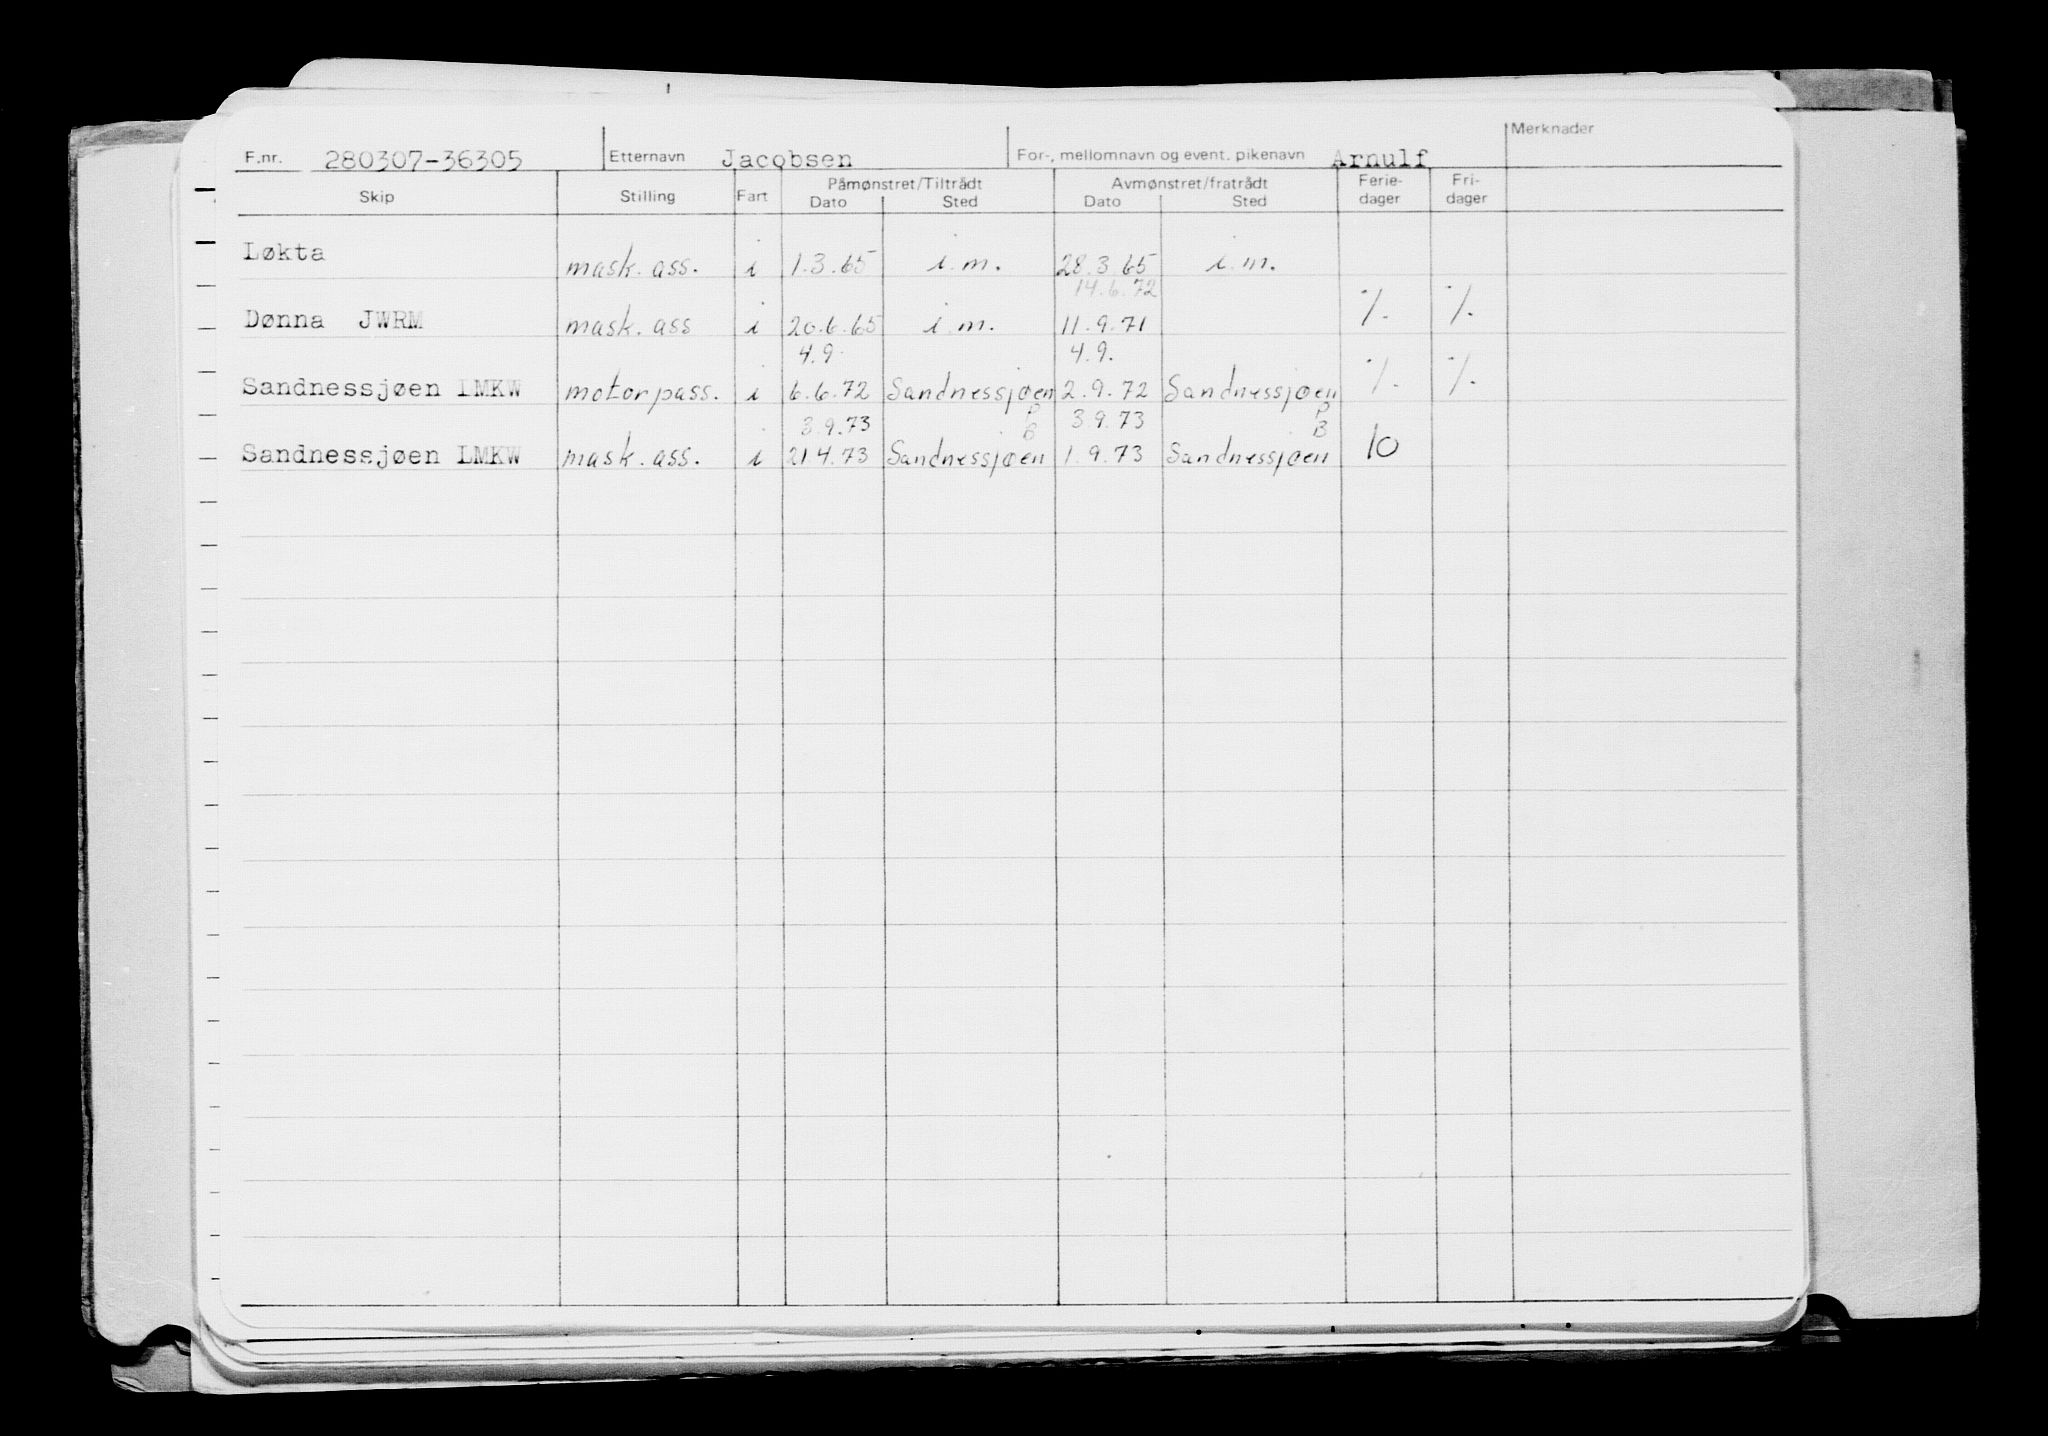 F.nr. 280307-36305 Etternavn Jacobsen For-, mellomnavn og event. pikenavn Arnulf Merknader
Skip Stilling Fart Påmønstret/Tiltrådt Avmønstret/fratrådt Ferie- dager Fri- dager
Dato Sted Dato Sted
Løkta mask. ass. i 1.3.65 i.m. 28.3.65 i.m.
14.6.72
Dønna JWRM mask. ass i 20.6.65 i.m. 11.9.71 ·/. ·/.
4.9. 4.9.
Sandnessjøen LMKW motorpass. i 6.6.72 Sandnessjøen 2.9.72 Sandnessjøen ·/. ·/.
3.9.73 P B 3.9.73 P B
Sandnessjøen LMKW mask. ass. i 21 4.73 Sandnessjøen 1.9.73 Sandnessjøen 10